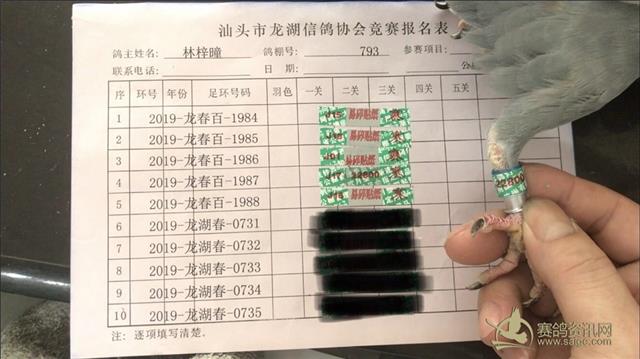 汕头市龙湖信鸽协会竞赛报名表
鸽主姓名: 林梓瞳 鸽棚号: 793 参赛项目:
联系电话: 日期:
序 环号 年份 足环号码 羽色 一关 二关 三关 四关 五关
1 2019-龙春百-1984 易碎贴纸
2 2019-龙春百-1985 易碎贴纸
3 2019-龙春百-1986 易碎贴纸
4 2019-龙春百-1987 22800
5 2019-龙春百-1988 易碎贴纸
6 2019-龙湖春-0731
7 2019-龙湖春-0732
8 2019-龙湖春-0733
9 2019-龙湖春-0734
10 2019-龙湖春-0735
注: 逐项填写清楚。
22800
赛鸽资讯网
www.sage.com